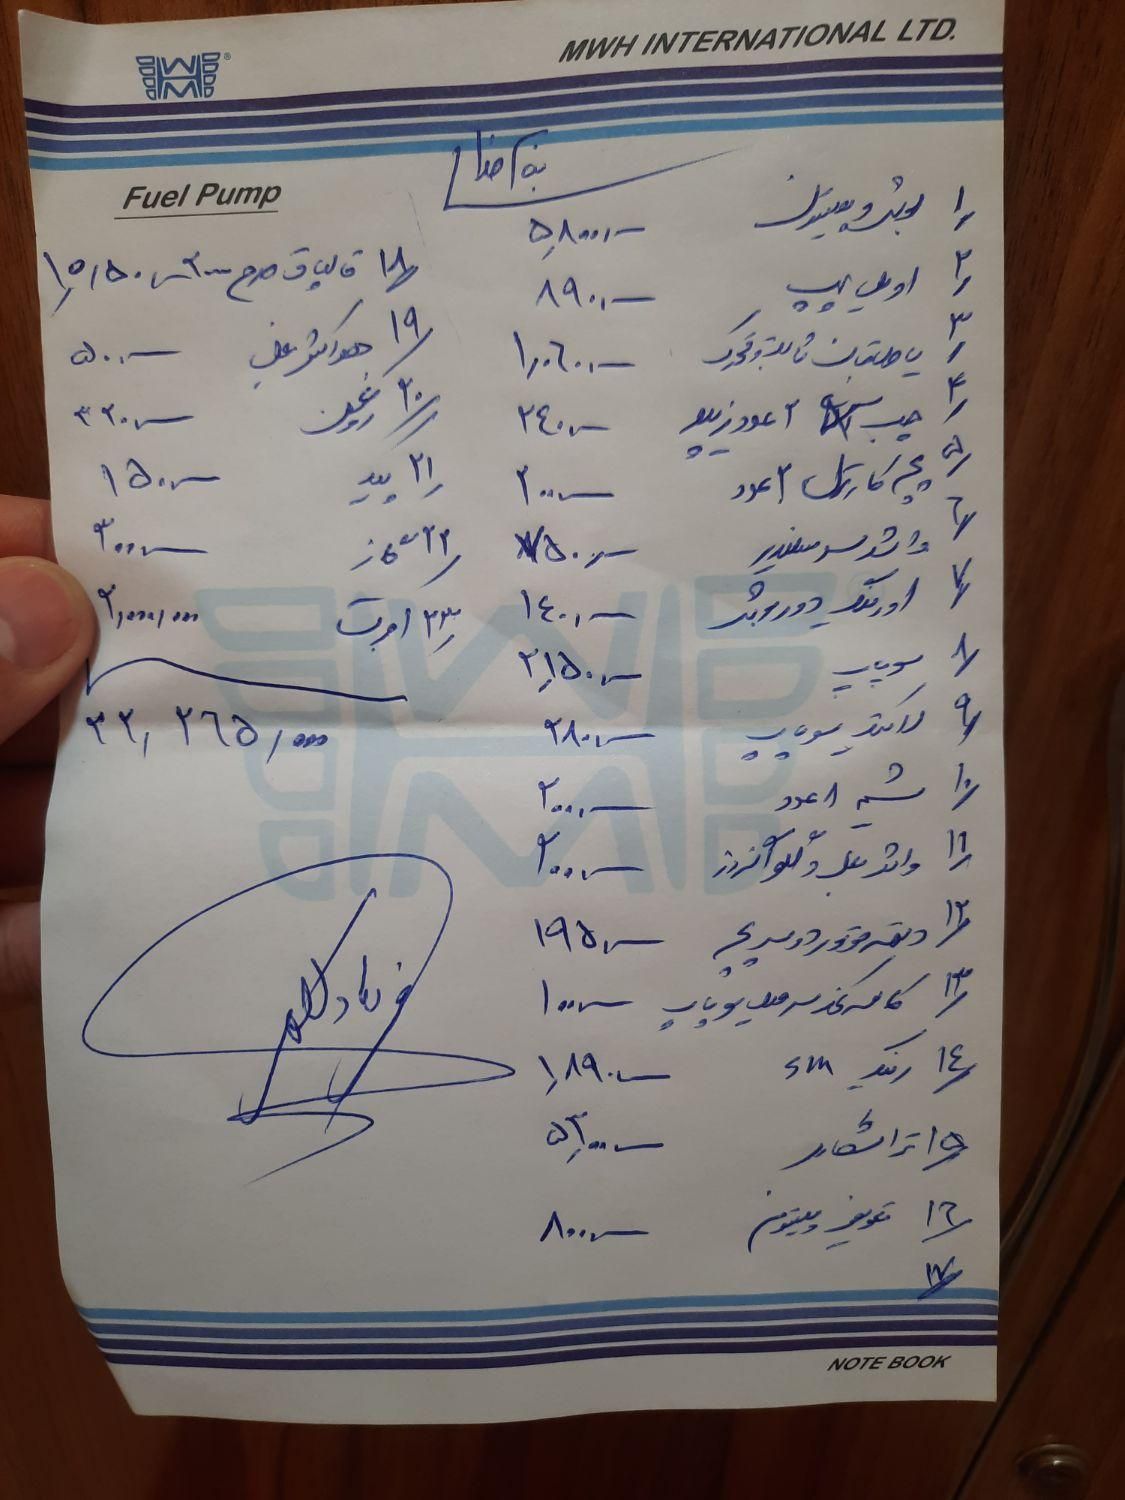 MWH INTERNATIONAL LTD.
Fuel Pump
بنام خدا
۱/ بوش و پیستون ۵,۸۰۰,۰۰۰
۲/ اویل پمپ ۸۹۰,۰۰۰
۳/ یاطاقان ثابت و متحرک ۱,۰۶۰,۰۰۰
۴/ چسب ۲ عدد ۲۴۰,۰۰۰
۵/ پیچ کارتل ۲ عدد ۲۰۰,۰۰۰
۶/ واشر سرسیلندر ۷۵۰,۰۰۰
۷/ اورینگ دور بوش ۱۴۰,۰۰۰
۸/ سوپاپ ۲,۱۵۰,۰۰۰
۹/ لاستیک سوپاپ ۲۸۰,۰۰۰
۱۰/ ۸ عدد ۲۰۰,۰۰۰
۱۱/ واشر ۲۰۰,۰۰۰
۱۲/ ۱۹۵,۰۰۰
۱۳/ کاسه نمد سر میل سوپاپ ۱۰۰,۰۰۰
۱۴/ رینگ sm ۱,۸۹۰,۰۰۰
۱۵/ تراشکار ۵,۳۰۰,۰۰۰
۱۶/ تعویض ۸۰۰,۰۰۰
۱۷/
۱۸/ قالپاق
۱۹/ هواکش ۵۰۰,۰۰۰
۲۰/ روغن ۳۲۰,۰۰۰
۲۱/ پید ۱۵۰,۰۰۰
۲۲/ گاز ۳۰۰,۰۰۰
۲۳/ اجرت ۲,۰۰۰,۰۰۰
۲۲,۲۶۵,۰۰۰
NOTE BOOK